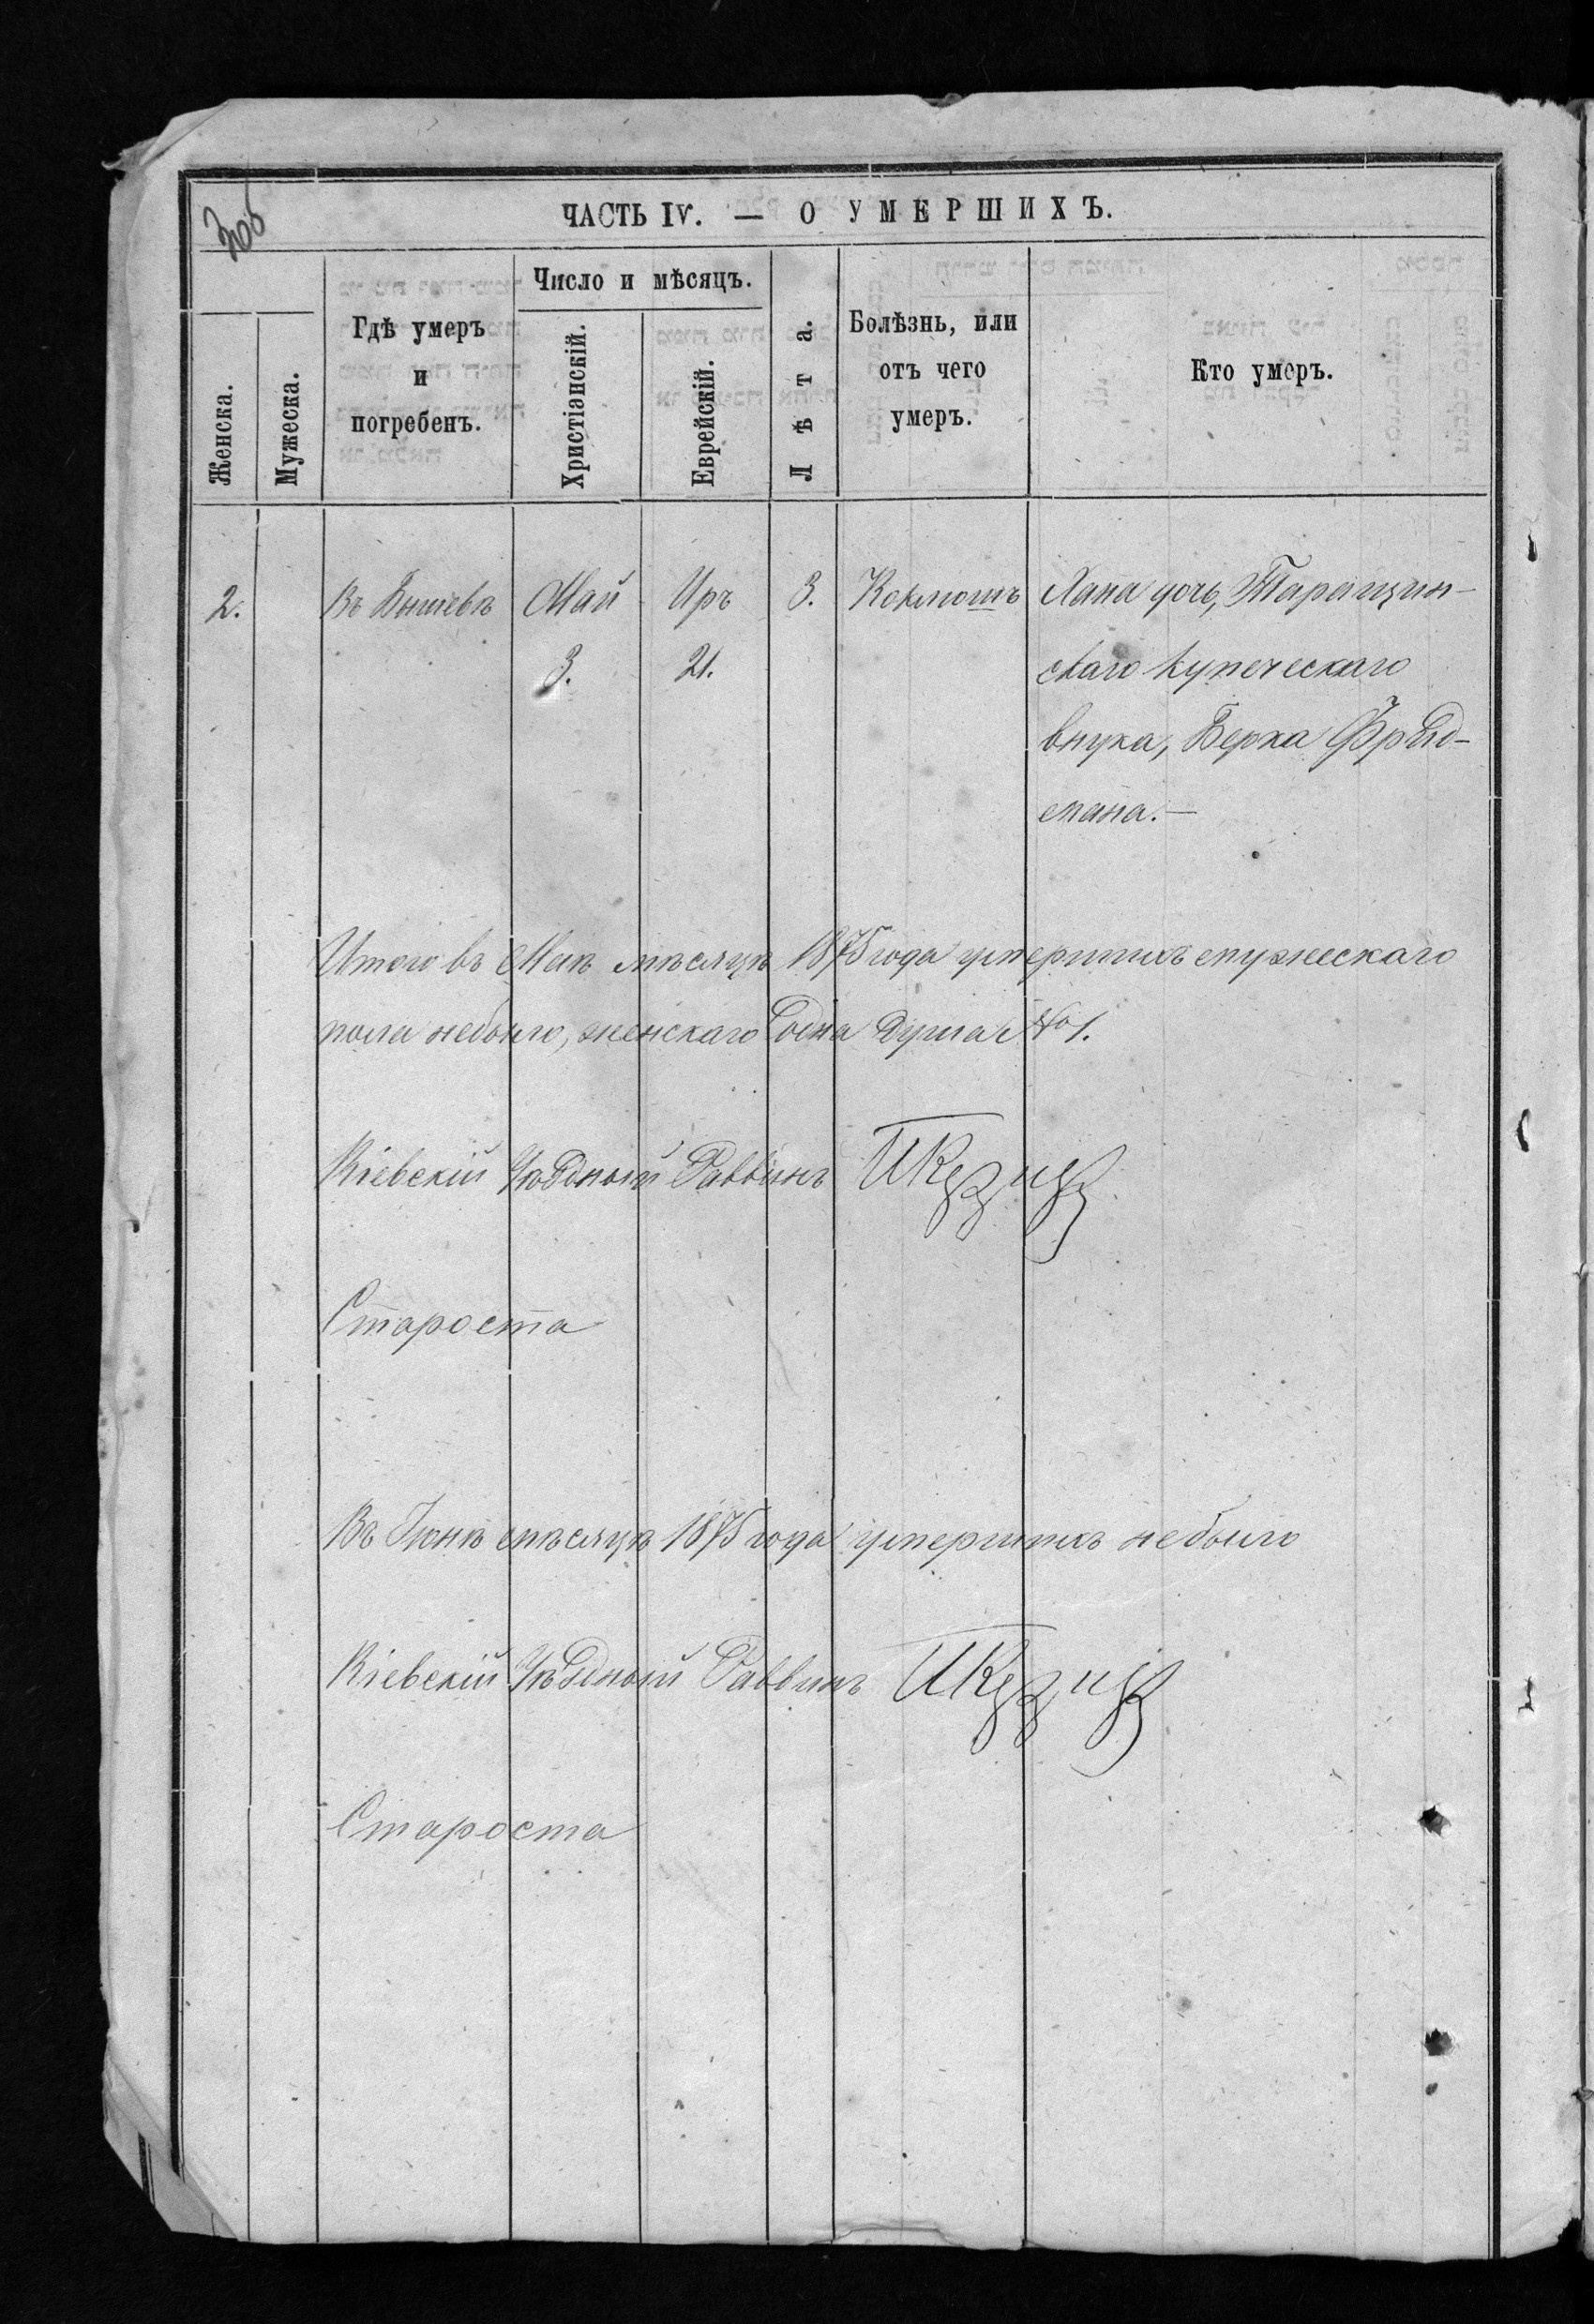 ЧАСТЬ IV. — О УМЕРШИХЪ.
Женска.
Мужеска.
Гдѣ умеръ
и
погребенъ.
Число и мѣсяцъ.
Христіанскій.
Еврейскій.
Лѣта.
Болѣзнь, или
отъ чего
умеръ.
Кто умеръ.
2. Въ Бышевѣ Май Иръ 3. Коклюшъ Хана дочь, Таращин-
3. 21. скаго купеческаго
внука, Берка Фрыд-
мана.—
Итого въ Маѣ мѣсяцѣ 1875 года умершихъ мужескаго
пола небыло, женскаго одна душа № 1.
Кіевскій Уѣздный Раввинъ
Староста
Въ Іюнѣ мѣсяцѣ 1875 года умершихъ небыло
Кіевскій Уѣздный Раввинъ
Староста